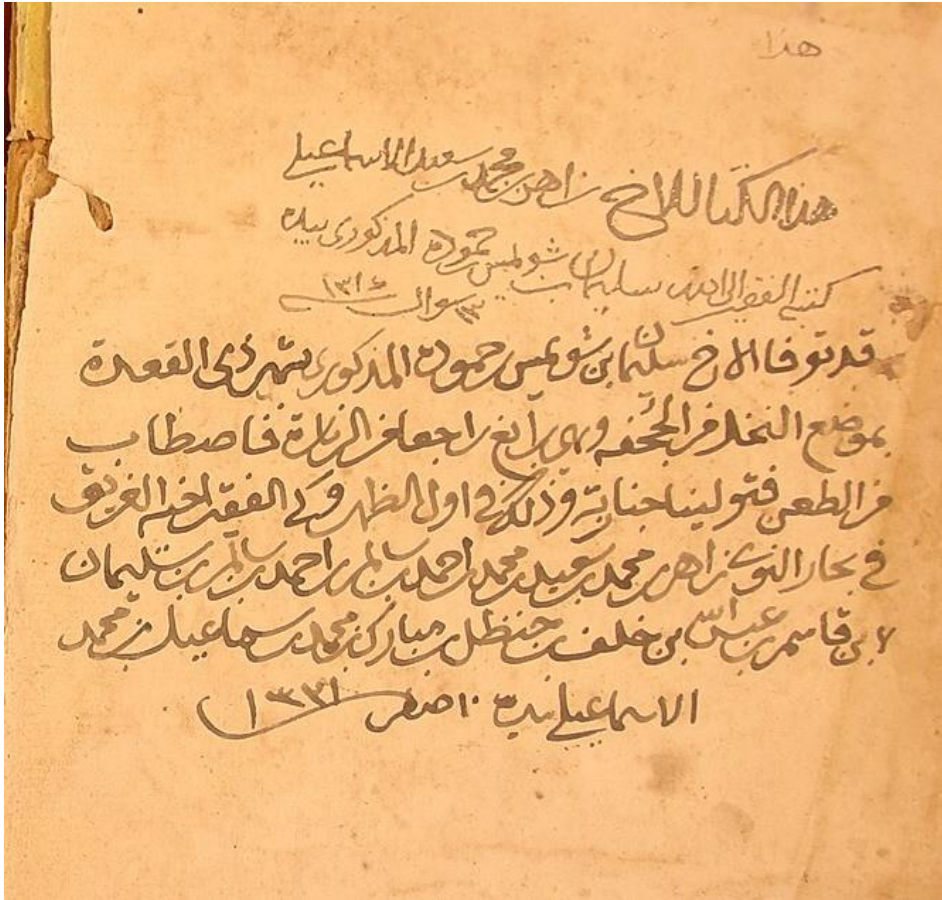 هذا
هذا الكتاب للاخ زاهر بن محمد بن سعيد الاسماعيلي
كتبه الفقير الى الله سليمان بن شوليس حمودة المذكوري بيده
٣ شوال ١٣١٤
قد توفا الاخ سليمان بن شويمس حمودة المذكوري بشهر ذي القعدة
بموضع النخل من الجحفه وهي رابغ راجعا من الزيارة
من الطعن فتولينا جنايزه وذلك في اول الظهر وكتبه الفقير لاخيه الغريق
في بحار الذنوب زاهر بن محمد بن سعيد بن محمد بن احمد بن سالم بن احمد بن سالم بن سليمان
ابن قاسم بن عباس بن خلف بن حنظل بن مبارك بن محمد بن سماعيل بن محمد
الاسماعيلي بيده ١٠ صفر ١٣٣١